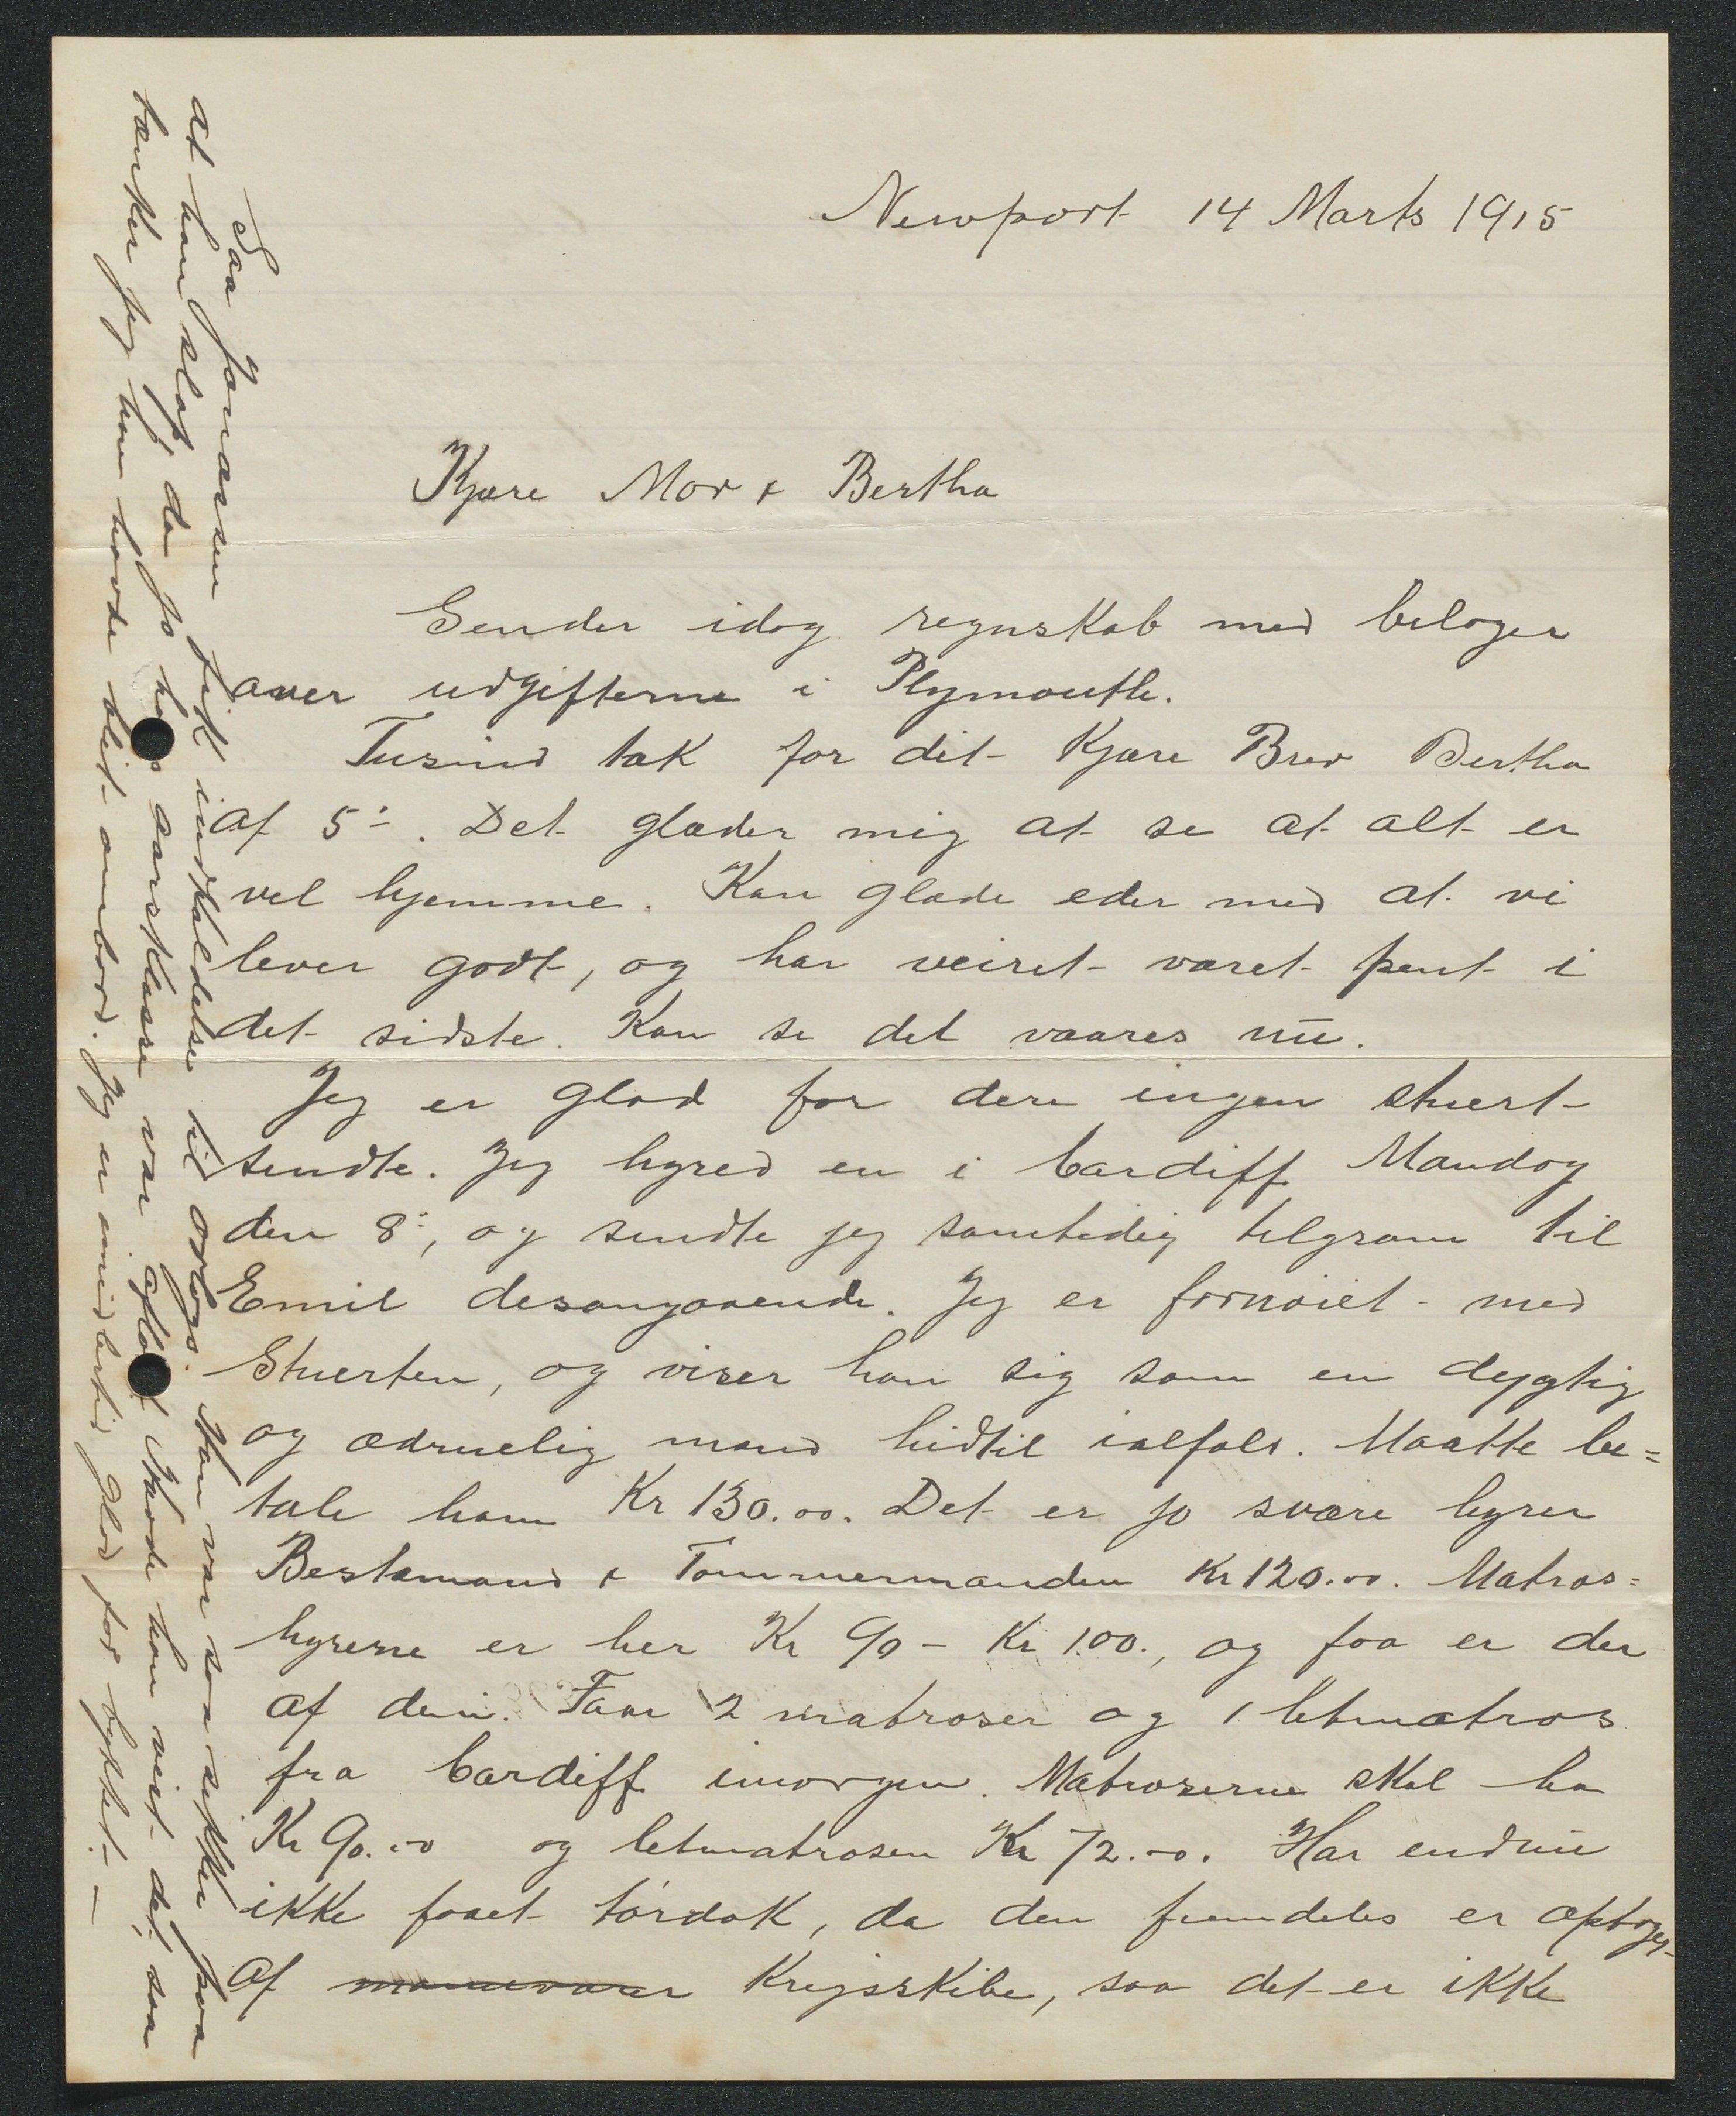 Newport 14 Marts 1915
Kjære Mor & Bertha
Sender idag regnskab med belager
over udgifterne i Plymouth.
Tusind tak for dit Kjære Brev Bertha
af 5÷. Det glæder mig at se at alt er
vel hjemme. Kan glæde eder med at vi
lever godt, og har veiret været pent i
det sidste. Kan se det vaares nu.
Jeg er glad for dere ingen stuert
sendte. Jeg hyred en i Cardiff Mandag
den 8÷, og sendte jeg samtidig telgram til
Emil desangaaende. Jeg er fornøiet med
Stuerten, og viser han sig som en dygtig
og ædruelig mand hidtil ialfald. Maatte be=
tale ham Kr 130.00. Det er jo svære hyrer
Bestemand & Tømmermanden Kr 120.00. Matros=
hyrerne er her Kr 90 - Kr 100., og faa er der
af dem. Faar 2 matroser og 1 letmatros
fra Cardiff imorgen. Matroserne skal ha
Kr 90.00 og letmatrosen Kr 72.00. Har endnu
ikke faaet tørdok, da den fremdeles er optagen
af Krigsskibe, saa det er ikke
Saa Jonassen fik indkaldelse til orlogs. Han var saa sikker paa
at han slap, da jo hans aarsklasse var afløst. Havde han vist det, saa
tænker jeg han havde blit ombord. Jeg er imidlertid glad for byttet.—